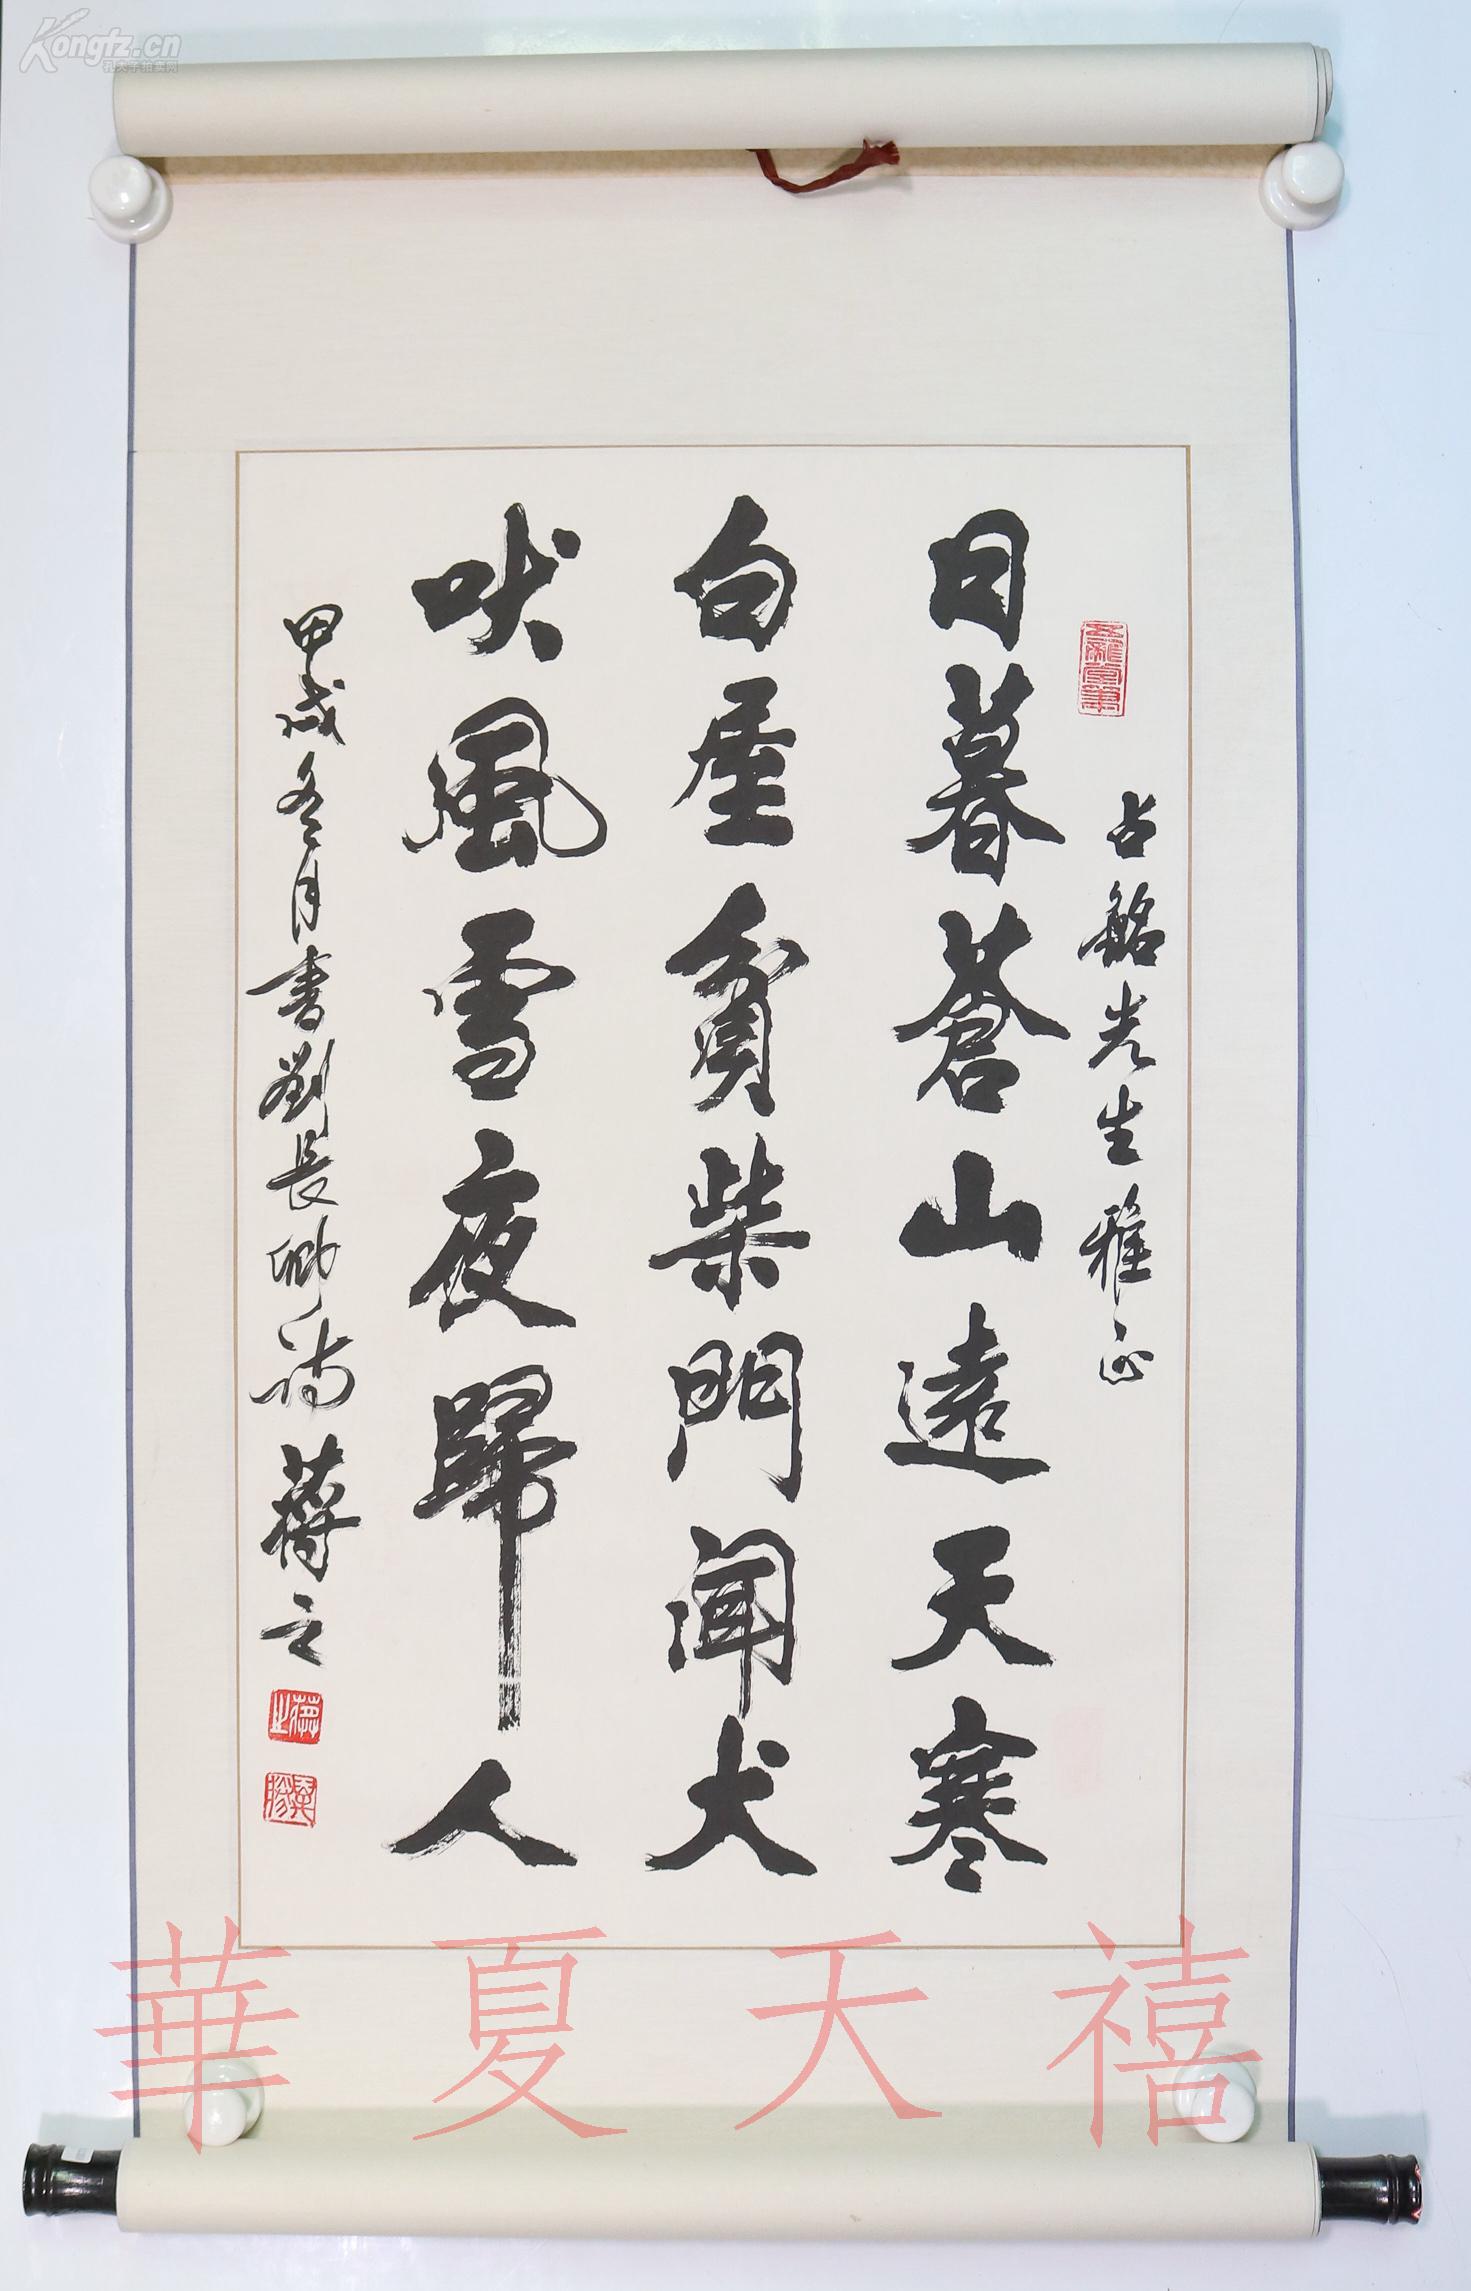 占铭先生雅正
日暮蒼山遠天寒
白屋貧柴門聞犬
吠風雪夜歸人
甲戌冬月書劉長卿詩 蔣之
Kongfz.cn
孔夫子拍卖网
華夏天禧